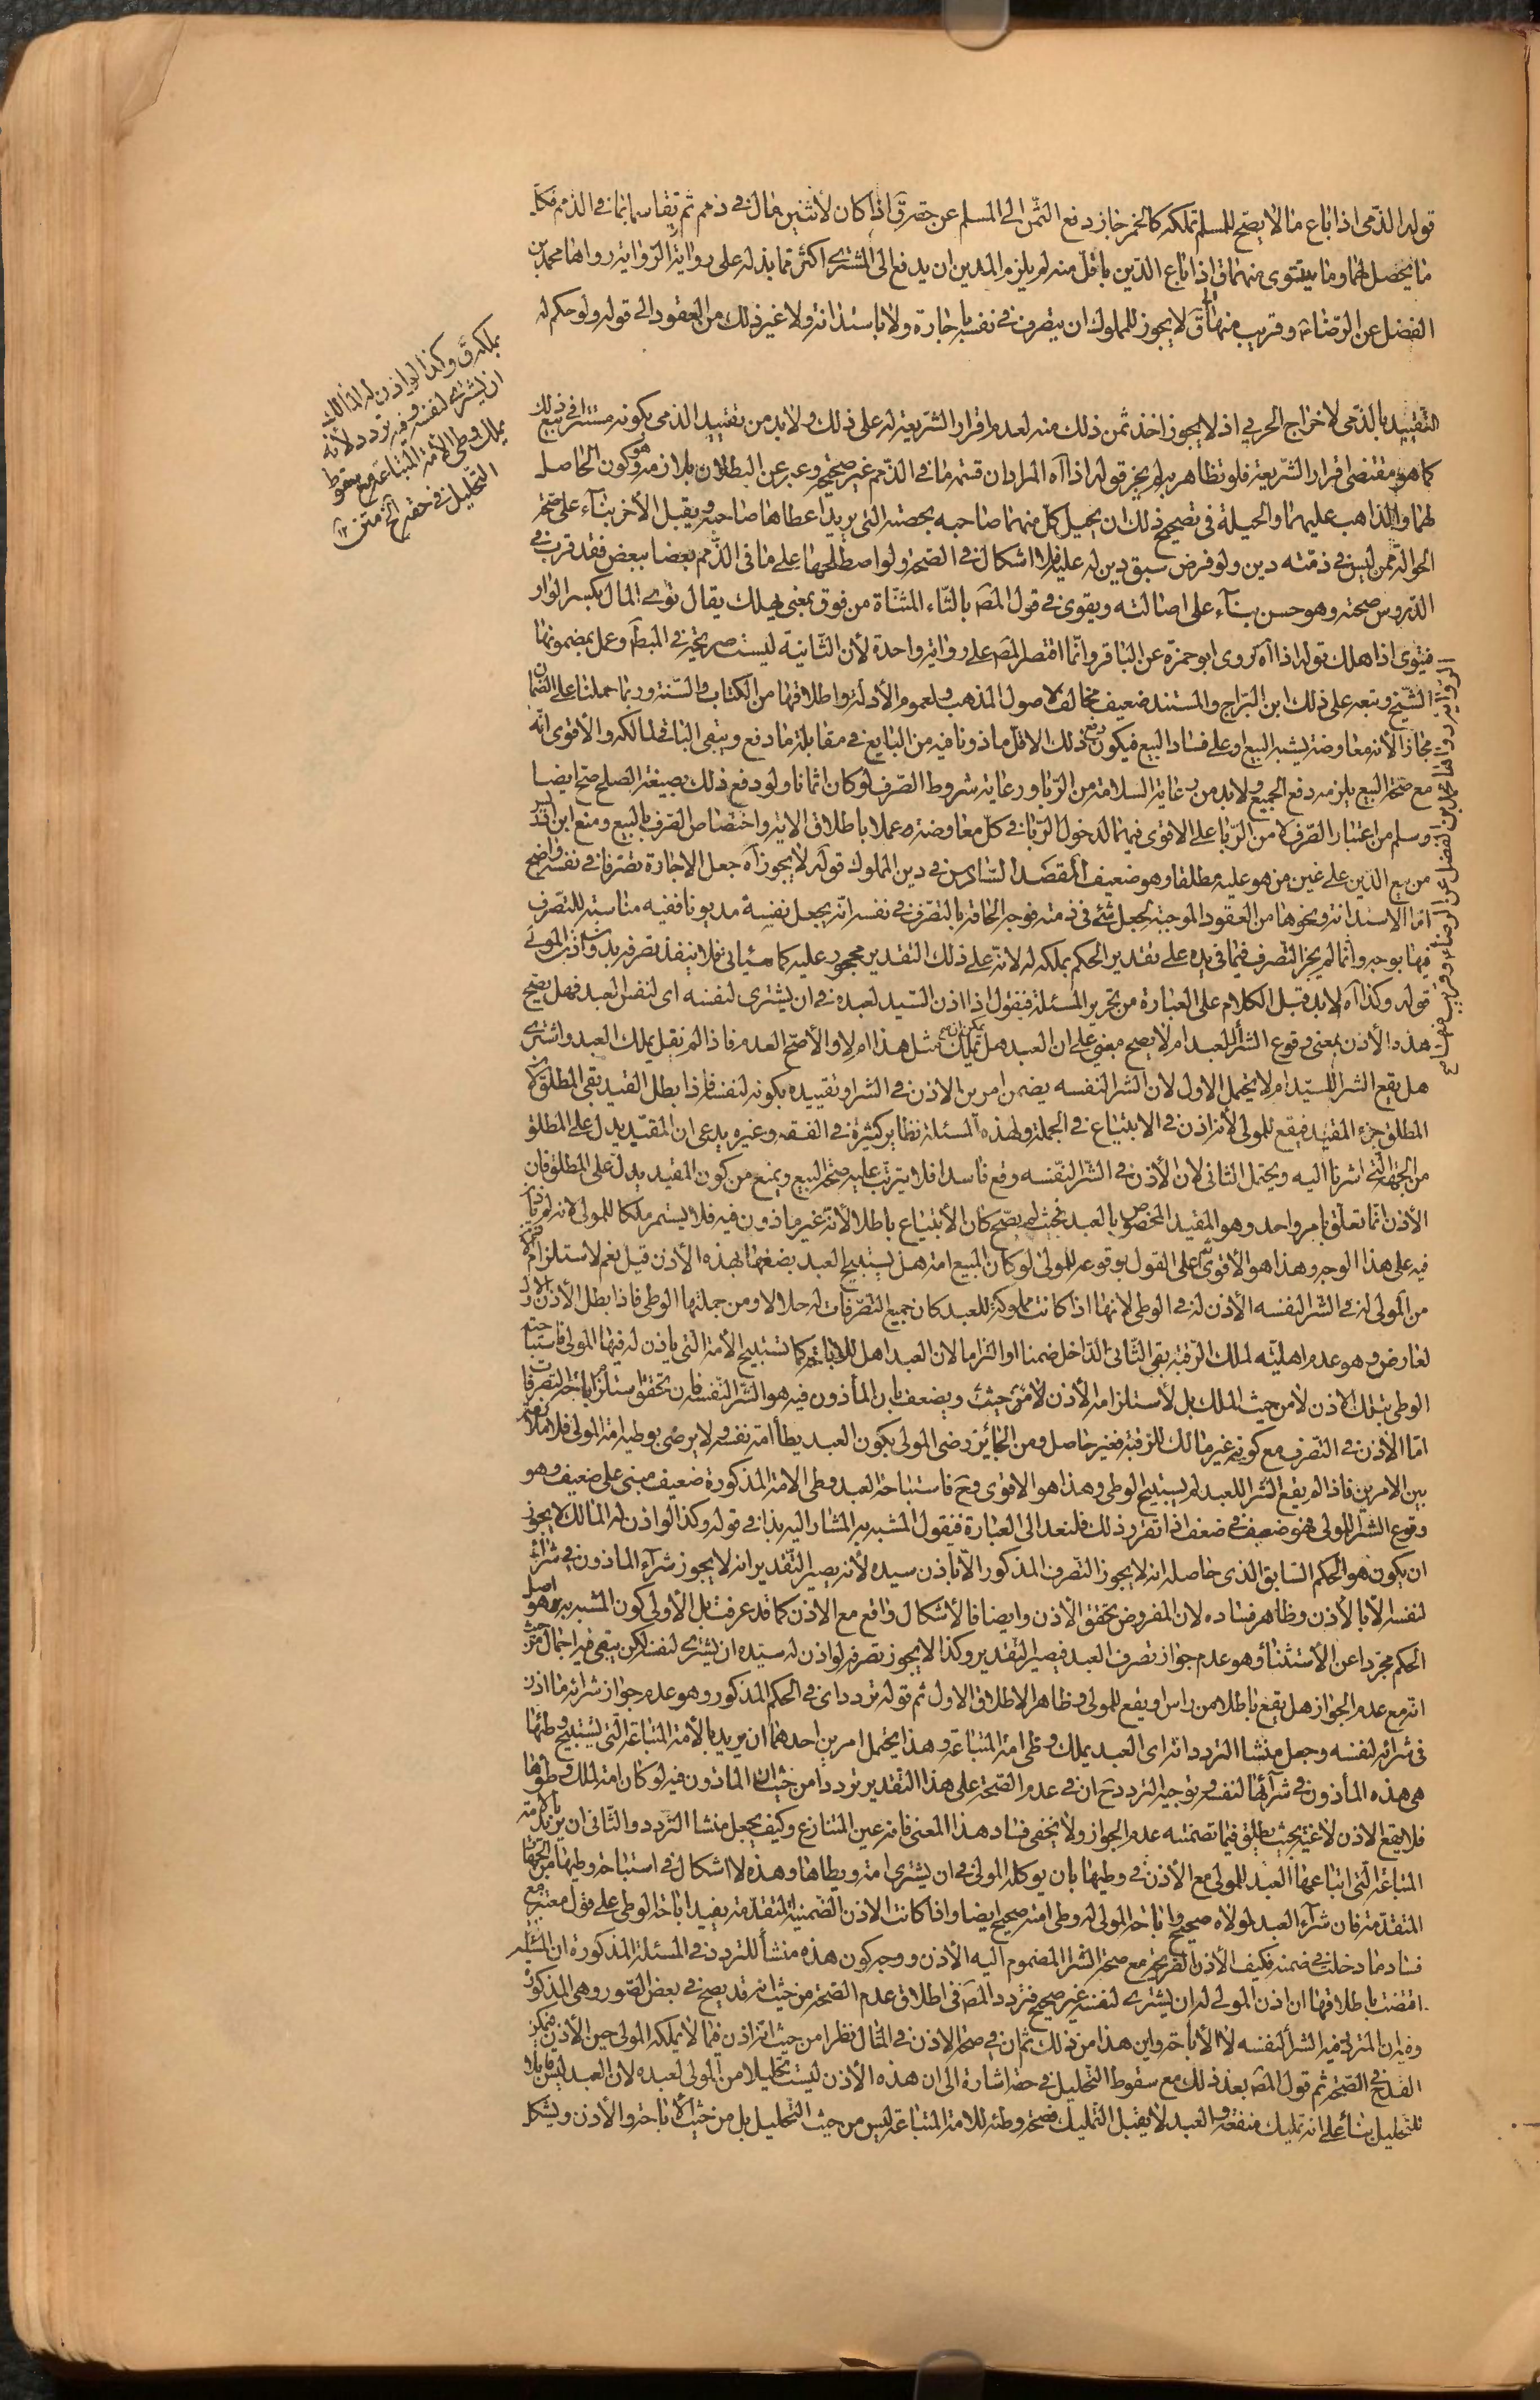 قوله الذمى اذا باع ما لا يصح للمسلم تملكه كالخمر جاز دفع الثمن الى المسلم عن حقه ق اذا كان لاثنين مال فى ذمم ثم تقاسما بما فى الذمم فكل
ما يحصل لهما وما يتوى منهما ق اذا باع الدين باقل منه لم يلزم المدين ان يدفع الى المشترى اكثر مما بذله على رواية الرواية رواها محمد بن
الفضل عن الرضا ع وقريب منها ق لا يجوز للمملوك ان يتصرف فى نفسه باجارة ولا باستدانة ولا غير ذلك من العقود الى قوله ولو حكم له
بملكه ق وكذا لو اذن له المالك
ان يشترى لنفسه وفيه تردد لانه
يملك وطى الامة المبتاعة مع سقوط
التحليل فى حقه الخ متن ١٢
التقييد بالذمى لاخراج الحربى اذ لا يجوز اخذ ثمن ذلك منه لعدم اقرار الشريعة له على ذلك ولا بد من تقييد الذمى بكونه مستترا فى بيع ذلك
كما هو مقتضى اقرار الشريعة فلو تظاهر به لم يجز قوله اذا اه المراد ان قسمة ما فى الذمم غير صحيح وعبر عن البطلان بلازمه وهو كون الحاصل
لهما والذاهب عليهما والحيلة فى تصحيح ذلك ان يحيل كل منهما صاحبه بحصته التى يريد اعطاها صاحبه ويقبل الاخر بناء على صحة
الحوالة ممن ليس فى ذمته دين ولو فرض سبق دين له عليه فلا اشكال فى الصحة ولو اصطلحا على ما فى الذمم بعضا ببعض فقد قرب فى
الدروس صحته وهو حسن بناء على اصالته ويقوى فى قول المص بالتاء المثناة من فوق بمعنى يهلك يقال توى المال بكسر الواو
فيتوى اذا هلك قوله اذا اه روى ابو حمزة عن الباقر وانما اقتصر المص على رواية واحدة لان الثانية ليست صريحة فى المط وعمل بمضمونها
الشيخ وتبعه على ذلك ابن البراج والمستند ضعيف مخالف لاصول المذهب ولعموم الادلة واطلاقها من الكتاب والسنة وربما حملتا على الضمان
مجازا لانه معاوضة يشبه البيع او على فساد البيع فيكون دفع ذلك الاقل ماذونا فيه من البايع فى مقابلة ما دفع ويبقى الباقى لمالكه والاقوى انه
مع صحة البيع يلزمه دفع الجميع ولا بد من رعاية السلامة من الربا ورعاية شروط الصرف لو كان اثمانا ولو دفع ذلك بصيغة الصلح صح ايضا
وسلم من اعتبار الصرف لا من الربا على الاقوى فيهما لدخول الربا فى كل معاوضة عملا باطلاق الاية واختصاص الصرف بالبيع ومنع ابن ادريس
من بيع الدين على غير من هو عليه مطلقا وهو ضعيف المقصد السادس فى دين المملوك قوله لا يجوز اه جعل الاجارة تصرفا فى نفسه واضح
اما الاستدانة ونحوها من العقود الموجبة لجعل شئ فى ذمته فوجه الحاقه بالتصرف فى نفسه انه يجعل نفسه مديونا ففيه مناسبة للتصرف
فيها بوجه وانما لم يجز التصرف فيما فى يده على تقدير الحكم بملكه له لانه على ذلك التقدير محجور عليه كما سيأتى فلا ينفذ تصرفه بدون اذن المولى
قوله وكذا اه لابد قبل الكلام على العبارة من تحرير المسئلة فنقول اذا اذن السيد لعبده فى ان يشترى لنفسه اى لنفس العبد فهل يصح
هذه الاذن بمعنى وقوع الشرا للعبد ام لا يصح مبنى على ان العبد هل يملك مثل هذا ام لا والاصح العدم فاذا لم نقل بملك العبد واشترى
هل يقع الشرا للسيد ام لا يحتمل الاول لان الشرا لنفسه يضمن امرين الاذن فى الشرا وتقييده بكونه لنفسه فاذا بطل القيد بقى المطلق لان
المطلق جزء المقيد فيقع للمولى لانه اذن فى الابتياع فى الجملة ولهذه المسئلة نظاير كثيرة فى الفقه وغيره يدعى ان المقيد يدل على المطلق
من الجهة التى اشرنا اليه ويحتمل الثانى لان الاذن فى الشرا لنفسه وقع فاسدا فلا يترتب عليه صحة البيع ويمنع من كون المقيد يدل على المطلق فان
الاذن انما تعلق بامر واحد وهو المقيد المخصوص بالعبد فحيث لم يصح كان الابتياع باطلا لانه غير ماذون فيه فلا يستمر ملكا للمولى لانه لم ياذن
فيه على هذا الوجه وهذا هو الاقوى ثم على القول بوقوعه للمولى لو كان المبيع امة هل يستبيح العبد بضعها بهذه الاذن قيل نعم لاستلزامه
من المولى له فى الشرا لنفسه الاذن له فى الوطى لانها اذا كانت مملوكة للعبد كان جميع التصرفات له حلالا ومن جملتها الوطى فاذا بطل الاذن الاول
لعارض وهو عدم اهليته لملك الرقبة بقى الثانى الداخل ضمنا او التزاما لان العبد اهل للاباحة كما تستبيح الامة التى ياذن له فيها المولى فاستباحته
الوطى بتلك الاذن لا من حيث الملك بل لاستلزامه الاذن لا من حيث ويضعف بان المأذون فيه هو الشرا لنفسه فان تحقق استلزم اباحة التصرفات
اما الاذن فى التصرف مع كونه غير مالك للرقبة فغير حاصل ومن الجائز رضى المولى بكون العبد يطأ امة نفسه ولا يرضى بوطيه امة المولى فلا ملازمة
بين الامرين فاذا لم يقع الشرا للعبد لم يستبيح الوطى وهذا هو الاقوى وح فاستباحة العبد وطى الامة المذكورة ضعيف مبنى على ضعيف وهو
وقوع الشرا للمولى فهو ضعيف فى ضعف اذا تقرر ذلك فلنعد الى العبارة فنقول المشبه به المشار اليه بذا فى قوله وكذا لو اذن له المالك لا يجوز
ان يكون هو الحكم السابق الذى حاصله انه لا يجوز التصرف المذكور الا باذن سيده لانه يصير التقدير انه لا يجوز شراء الماذون فى شرائه
لنفسه الا بالاذن وظاهر فساده لان المفروض تحقق الاذن وايضا فالاشكال واقع مع الاذن كما قد عرفت بل الاولى كون المشبه به هو اصل
الحكم مجردا عن الاستثناء وهو عدم جواز تصرف العبد فيصير التقدير وكذا لا يجوز تصرفه لو اذن له سيده ان يشترى لنفسه لكن يبقى فيه اجمال من حيث
انه مع عدم الجواز هل يقع باطلا من راس او يقع للمولى وظاهر الاطلاق الاول ثم قوله تردد اى فى الحكم المذكور وهو عدم جواز شرائه ما اذن
فى شرائه لنفسه وجعل منشا التردد انه اى العبد يملك وطى امة المبتاعة وهذا يحتمل امرين احدهما ان يريد بالامة المبتاعة التى يستبيح وطئها
هى هذه المأذون فى شرائها لنفسه وتوجيه التردد ح ان فى عدم الصحة على هذا التقدير تردد من حيث ان الماذون فيه لو كان امة لملك وطؤها
فلا يقع الاذن لاغية بحيث يطلق فيما تضمنته عدم الجواز ولا يخفى فساد هذا المعنى فانه عين المتنازع وكيف يجعل منشا التردد والثانى ان يريد بالامة
المبتاعة التى ابتاعها العبد للمولى مع الاذن فى وطيها بان يوكله المولى فى ان يشترى امة ويطاها وهذه لا اشكال فى استباحة وطيها من الجهة
المتقدمة فان شراء العبد لمولاه صحيح واباحة المولى له وطى امته صحيح ايضا واذا كانت الاذن الضمنية المتقدمة يفيد اباحة الوطى على قول معتبر مع
فساد ما دخلت فى ضمنه فكيف الاذن الصريحة مع صحة الشرا المضموم اليه الاذن ووجه كون هذه منشأ للتردد فى المسئلة المذكورة ان المسئلة
اقتضت باطلاقها ان اذن المولى له ان يشترى لنفسه غير صحيح فتردد المص فى اطلاق عدم الصحة من حيث انه قد يصح فى بعض الصور وهى المذكورة
الشرا لنفسه لا الاباحة واين هذا من ذلك ثم ان فى صحة الاذن فى الحال نظرا من حيث انه اذن فيما لا يملكه المولى حين الاذن فيمكن
القدح فى الصحة ثم قول المص بعد ذلك مع سقوط التحليل فى حقه اشارة الى ان هذه الاذن ليست تحليلا من المولى لعبده لان العبد ليس قابلا
للتحليل بناء على انه تمليك منفعة والعبد لا يقبل التمليك فصحة وطئه للامة المبتاعة ليس من حيث التحليل بل من حيث الاباحة والاذن ويشكل
الرواية رواها محمد بن الفضل عن الرضا ع وقريب منها